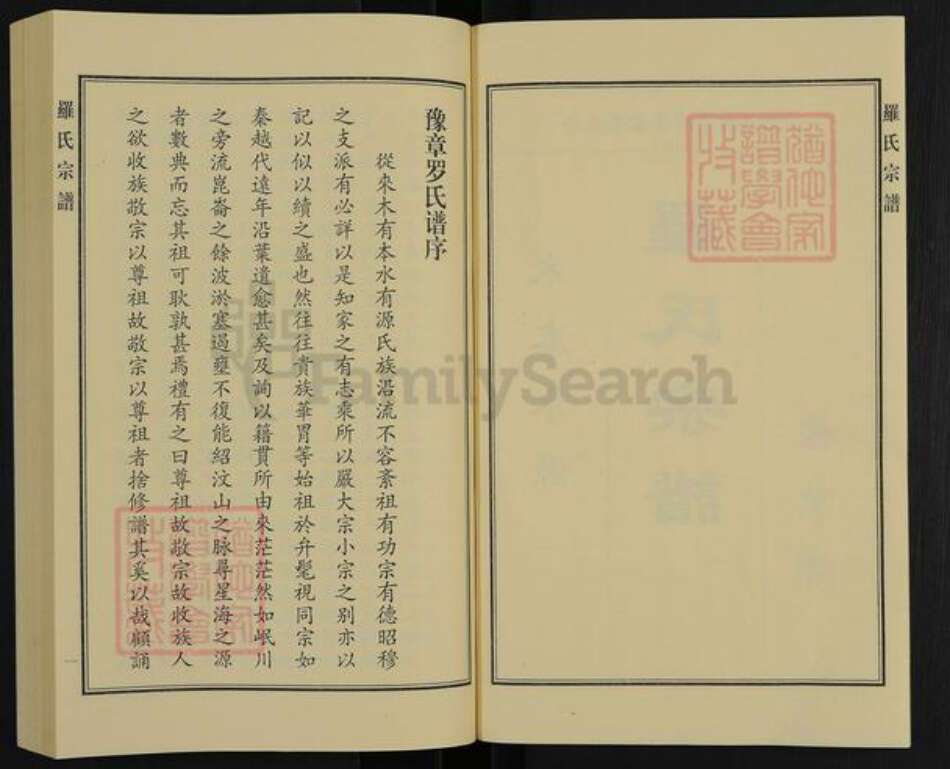 羅氏宗譜
豫章罗氏谱序
從來木有本水有源氏族沿流不容紊祖有功宗有德昭穆
之支派有必詳以是知家之有志乘所以嚴大宗小宗之别亦以
記以似以續之盛也然往往貴族華胄等始祖於弁髦視同宗如
秦越代遠年沿葉遺愈甚矣及詢以籍貫所由來茫茫然如岷川
之旁流崑崙之餘波淤塞過壅不復能紹汶山之脉尋星海之源
者數典而忘其祖可耿孰甚焉禮有之曰尊祖故敬宗故收族人
之欲收族敬宗以尊祖故敬宗以尊祖者捨修譜其奚以哉顧誦
羅氏宗譜
一
FamilySearch